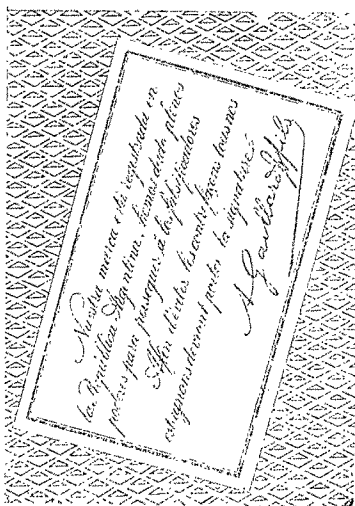 Nuestra marca está registrada en
la República Argentina. hemos dado plenos
poderes para perseguir á los falsificadores
Afin d'éviter les contrefaçons tous nos
cognacs devront porter la signature